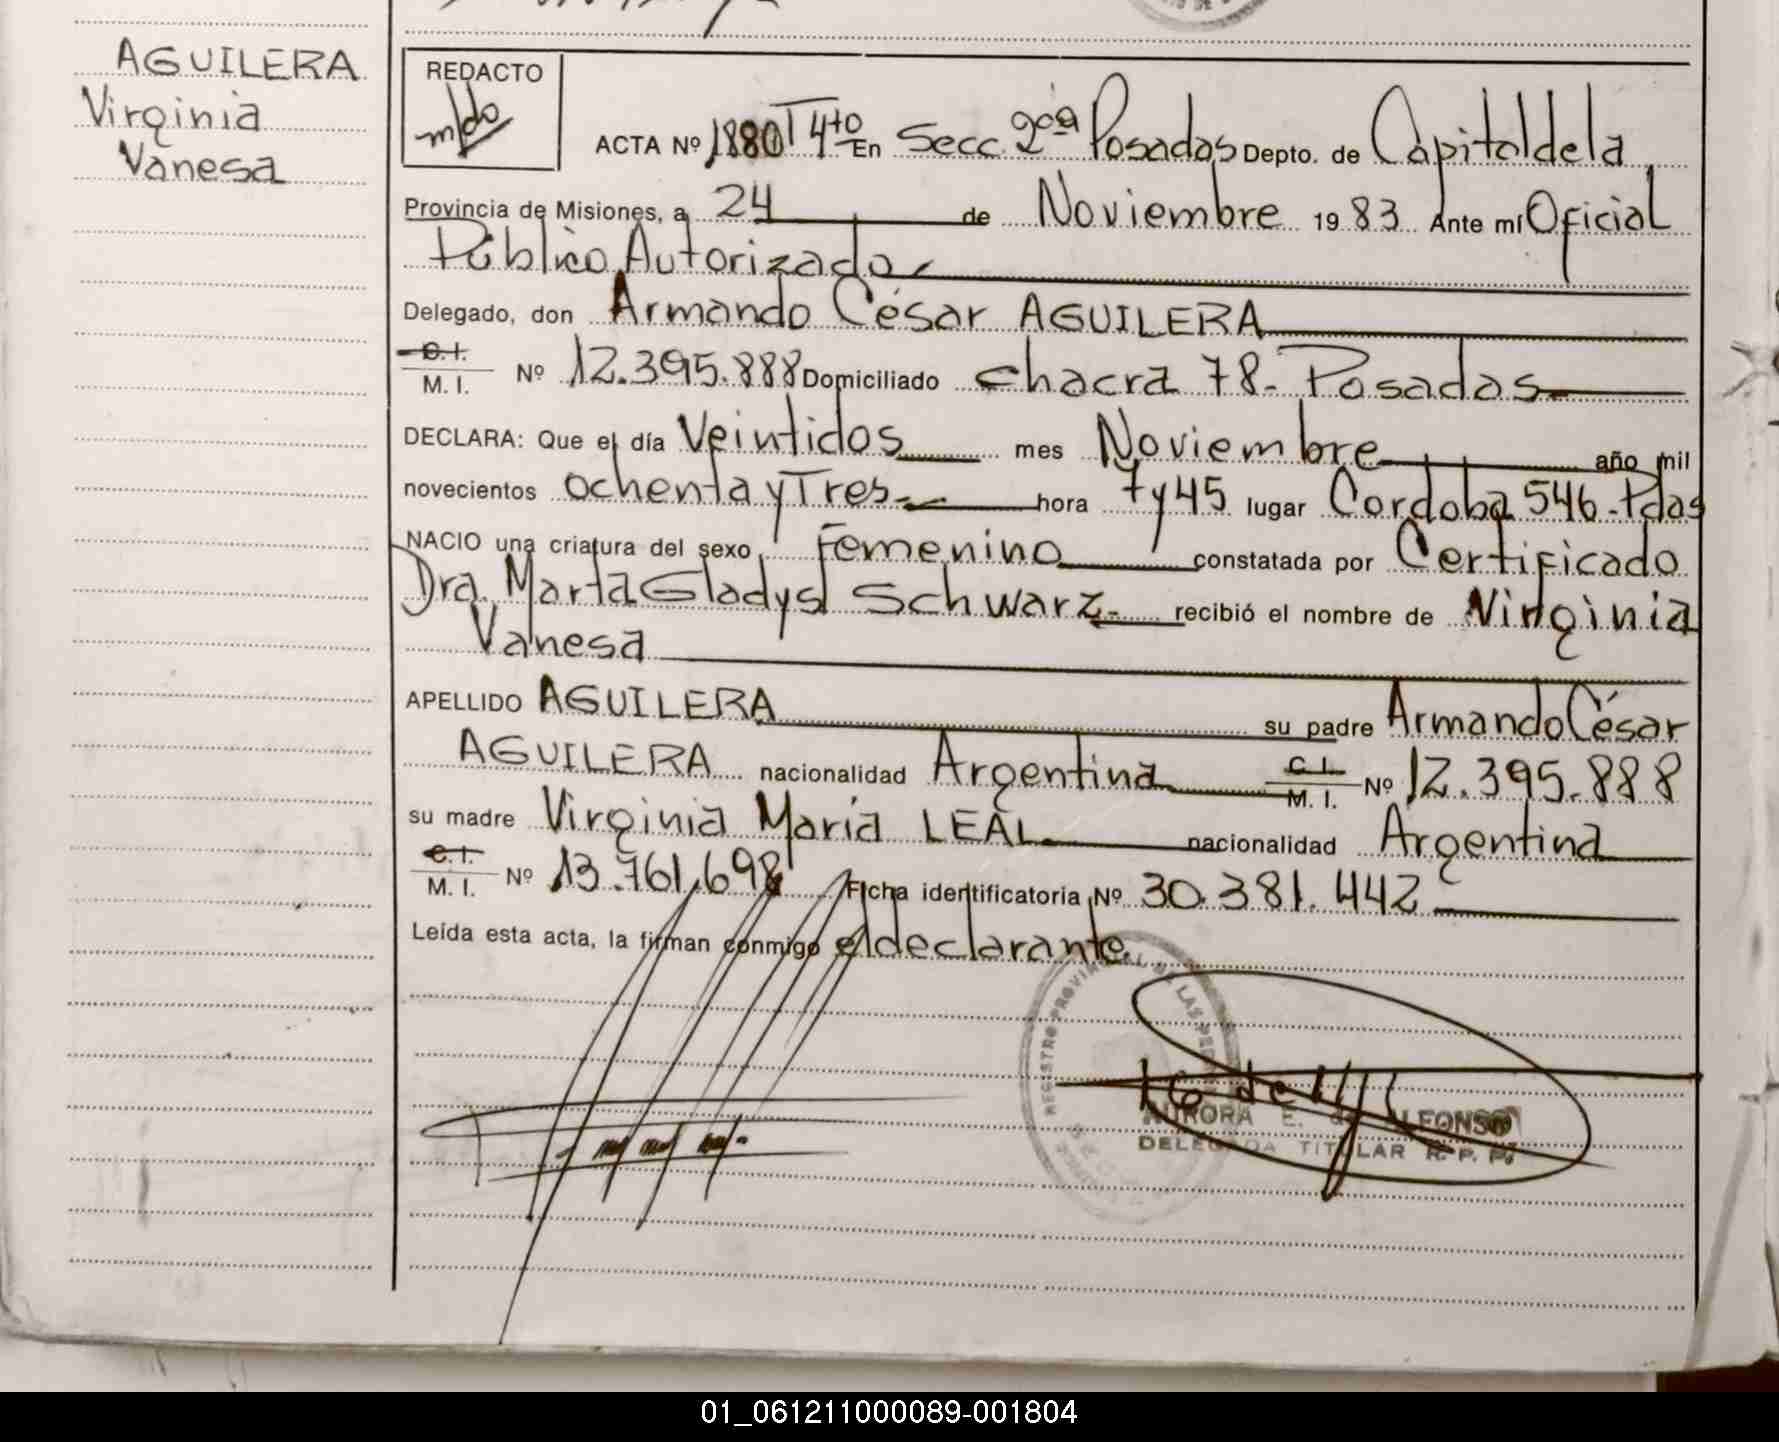 AGUILERA
Virginia
Vanesa
REDACTO
ACTA Nº 1880 T 4to En Secc. 2da Posadas Depto. de Capital de la
Provincia de Misiones, a 24 de Noviembre 1983 Ante mí Oficial
Público Autorizado
Delegado, don Armando César AGUILERA
C.I.
M. I. Nº 12.395.888 Domiciliado chacra 78 - Posadas
DECLARA: Que el día Veintidos mes Noviembre año mil
novecientos ochenta y Tres hora 7 y 45 lugar Cordoba 546 - Pdas
NACIO una criatura del sexo Femenino constatada por Certificado
Dra. Marta Gladys Schwarz recibió el nombre de Virginia
Vanesa
APELLIDO AGUILERA su padre Armando César
AGUILERA nacionalidad Argentina C.I. M. I. Nº 12.395.888
su madre Virginia María LEAL nacionalidad Argentina
C.I.
M. I. Nº 13.761.698 Ficha identificatoria Nº 30.381.442
Leída esta acta, la firman conmigo el declarante.
REGISTRO PROVINCIAL DE LAS PERSONAS
AURORA E. de ALFONSO
DELEGADA TITULAR R. P. P.
01_061211000089-001804